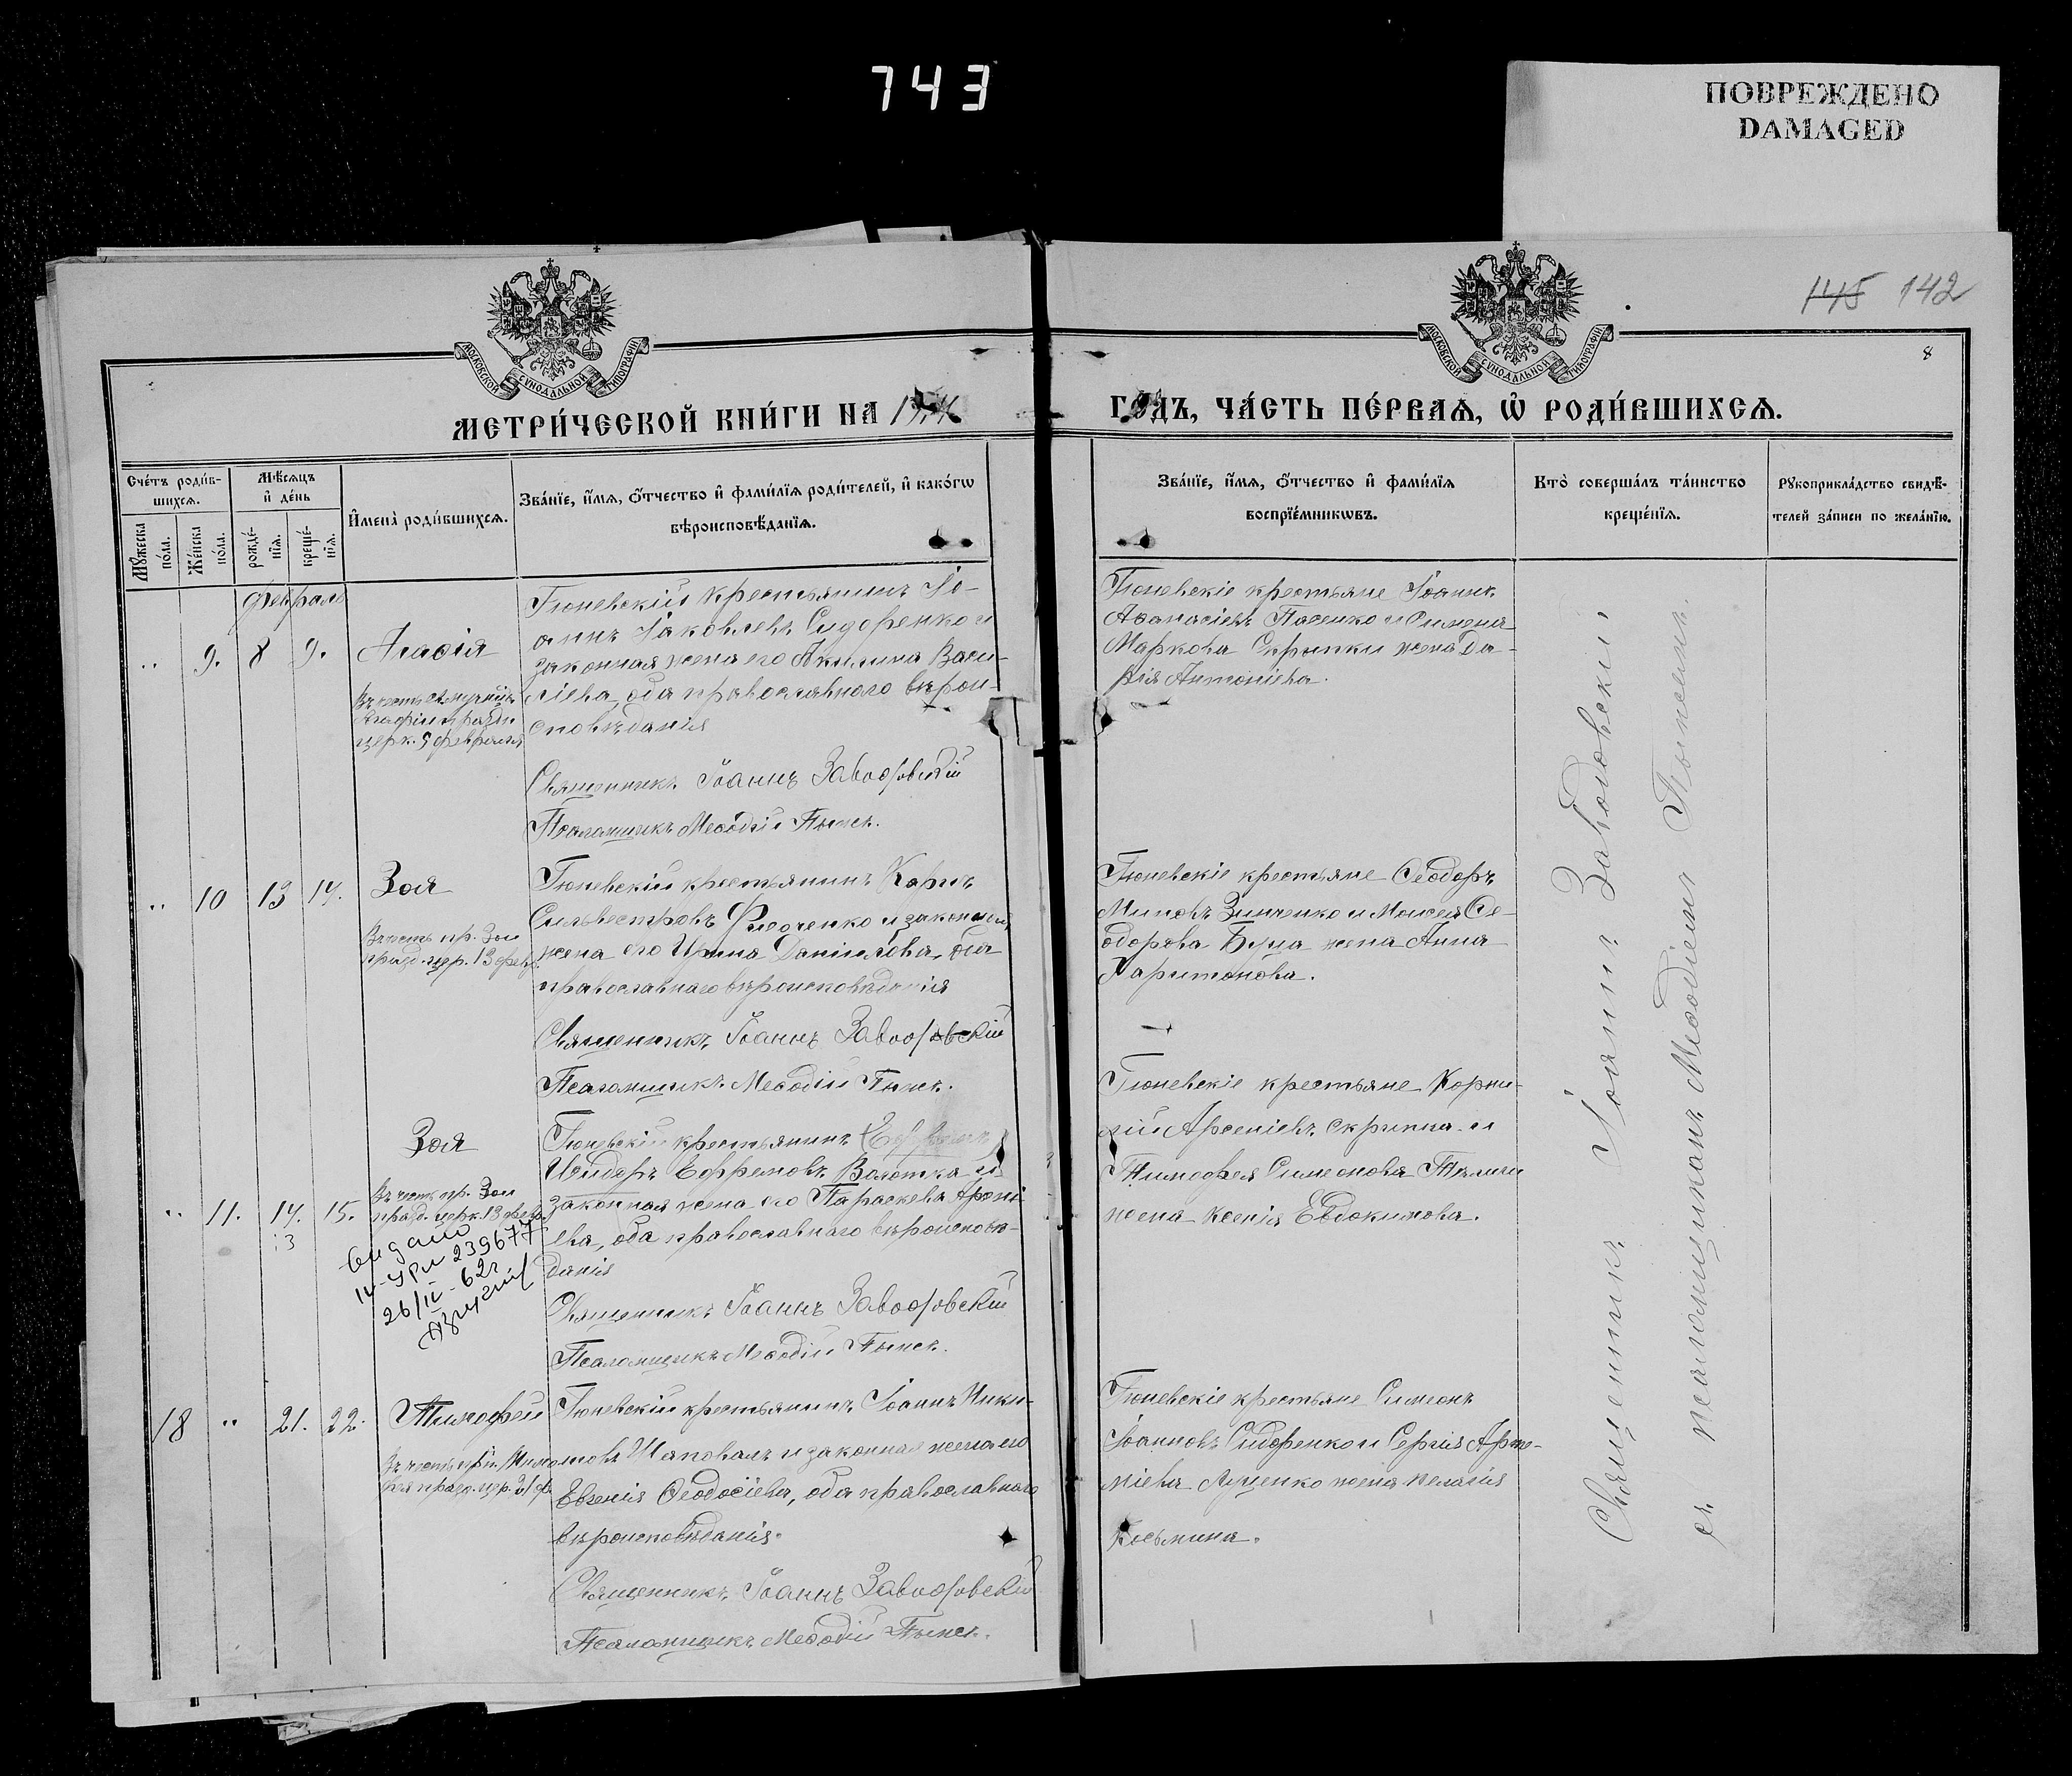 743
ПОВРЕЖДЕНО
DAMAGED
145 142
8
МОСКОВСКОЙ СУНОДАЛЬНОЙ ТИПОГРАФІИ
МОСКОВСКОЙ СУНОДАЛЬНОЙ ТИПОГРАФІИ
МЕТРИ́ЧЕСКОЙ КНИ́ГИ НА
ГОДЪ, ЧА́СТЬ ПЕ́РВАЯ, Ѡ҆ РОДИ́ВШИХСЯ.
Сче́тъ роди́в-
шихся.
Мꙋжеска
по́ла.
Же́нска
по́ла.
Мѣ́сяцъ
и҆ де́нь
рожде́-
нїя.
креще́-
нїя.
И҆мена̀ роди́вшихся.
Зва́нїе, и҆́мя, ѻ҆́тчество и҆ фами́лїя роди́телей, и҆ како́гѡ
вѣроисповѣ́данїя.
Зва́нїе, и҆́мя, ѻ҆́тчество и҆ фами́лїя
воспрїе́мникѡвъ.
Кто̀ соверша́лъ та́инство
креще́нїя.
Рꙋкоприкла́дство свидѣ́-
телей за́писи по жела́нїю.
Февраль
„ 9. 8 9.
Агафія
Въ честь св. мучениц.
Агафіи праздн.
церк. 5 февраля
Гюневскій крестьянинъ Іо-
аннъ Іаковлевъ Сидоренко и
законная жена его Акилина Васи-
ліева, оба православнаго вѣрои-
сповѣданія
Священникъ Іоаннъ Заводовскій
Псаломщикъ Меѳодій
Гюневскіе крестьяне Іоаннъ
Аѳанасіевъ Пасенко и Симеона
Маркова Скрыпки жена Да-
рія Антоніева.
„ 10 13 14.
Зоя
Въ честь пр. Зои
празд. цер. 13 февр.
Гюневскій крестьянинъ Карпъ
Сильвестровъ Федченко и законная
жена его Ирина Даніилова, оба
православнаго вѣроисповѣданія
Священникъ Іоаннъ Заводовскій
Псаломщикъ Меѳодій
Гюневскіе крестьяне Ѳеодоръ
Миновъ Зинченко и Моисея Ѳе-
одорова Буца жена Анна
Харитонова.
„ 11. 14. 15.
13
Зоя
Въ честь пр. Зои
празд. церк. 13 февр.
Видано
239677
26/II - 62г
Гюневскій крестьянинъ
Исидоръ Ефремовъ Волотка и
законная жена его Параскева Арсені-
ева, оба православнаго вѣроисповѣ-
данія
Священникъ Іоаннъ Заводовскій
Псаломщикъ Меѳодій
Гюневскіе крестьяне Корни-
лій Арсеніевъ Скрипка и
Тимофея Симеонова
жена Ксенія Евдокимова.
18 „ 21. 22.
Тимофей
Въ честь пр. Тимо-
фея празд. цер. 21 ф.
Гюневскій крестьянинъ Іоаннъ Ники-
товъ Шаповалъ и законная жена его
Евгенія Ѳеодосіева, оба православнаго
вѣроисповѣданія.
Священникъ Іоаннъ Заводовскій
Псаломщикъ Меѳодій
Гюневскіе крестьяне Симеонъ
Іоанновъ Сидоренко и Сергія Арте-
міева Луценко жена Пелагія
Косьмина.
Священникъ Іоаннъ Заводовскій
съ псаломщикомъ Меѳодіемъ